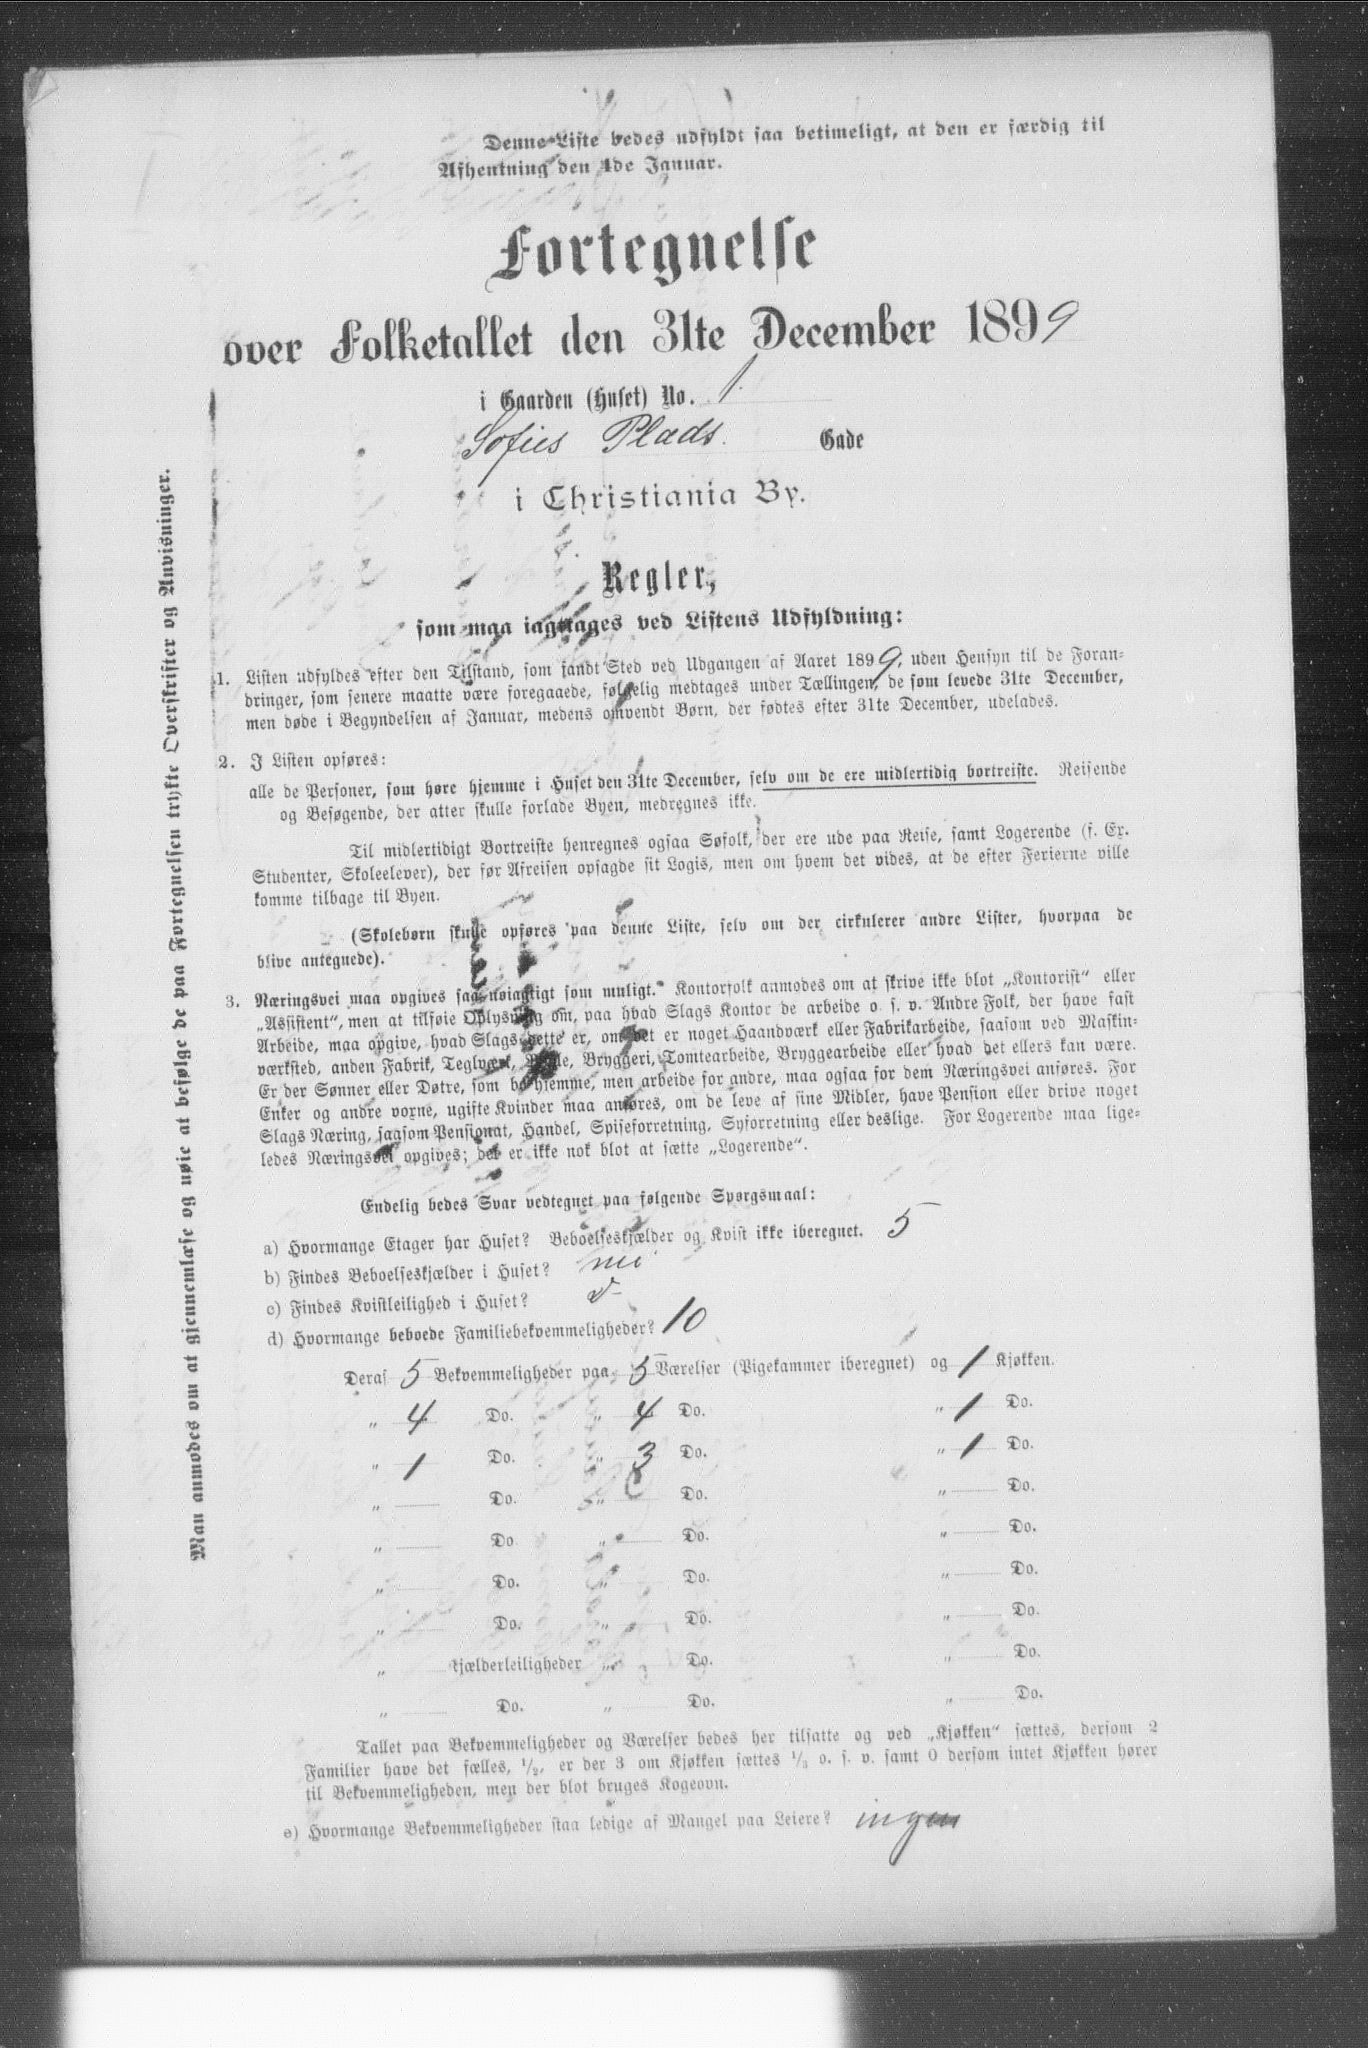 Denne Liste bedes udfyldt saa betimeligt, at den er færdig til
Afhentning den 4de Januar.
Fortegnelse
over Folketallet den 31te December 1899
i Gaarden (Huset) No. 1.
Sofies Plads. Gade
i Christiania By.
Regler,
som maa iagttages ved Listens Udfyldning:
1. Listen udfyldes efter den Tilstand, som fandt Sted ved Udgangen af Aaret 1899, uden Hensyn til de Foran-
dringer, som senere maatte være foregaaede, følgelig medtages under Tællingen, de som levede 31te December,
men døde i Begyndelsen af Januar, medens omvendt Børn, der fødtes efter 31te December, udelades.
2. I Listen opføres:
alle de Personer, som høre hjemme i Huset den 31te December, selv om de ere midlertidig bortreiste. Reisende
og Besøgende, der atter skulle forlade Byen, medregnes ikke.
Til midlertidigt Bortreiste henregnes ogsaa Søfolk, der ere ude paa Reise, samt Logerende (f. Ex.
Studenter, Skoleelever), der før Afreisen opsagde sit Logis, men om hvem det vides, at de efter Ferierne ville
komme tilbage til Byen.
(Skolebørn skulle opføres paa denne Liste, selv om der cirkulerer andre Lister, hvorpaa de
blive antegnede).
3. Næringsvei maa opgives saa nøiagtigt som muligt. Kontorfolk anmodes om at skrive ikke blot „Kontorist“ eller
„Assistent“, men at tilføie Oplysning om, paa hvad Slags Kontor de arbeide o. s. v. Andre Folk, der have fast
Arbeide, maa opgive, hvad Slags dette er, om det er noget Haandværk eller Fabrikarbeide, saasom ved Maskin-
værksted, anden Fabrik, Teglværk, Mølle, Bryggeri, Tomtearbeide, Bryggearbeide eller hvad det ellers kan være.
Er der Sønner eller Døtre, som bo hjemme, men arbeide for andre, maa ogsaa for dem Næringsvei anføres. For
Enker og andre voxne, ugifte Kvinder maa anføres, om de leve af sine Midler, have Pension eller drive noget
Slags Næring, saasom Pensionat, Handel, Spiseforretning, Syforretning eller deslige. For Logerende maa lige-
ledes Næringsvei opgives; det er ikke nok blot at sætte „Logerende“.
Endelig bedes Svar vedtegnet paa følgende Spørgsmaal:
a) Hvormange Etager har Huset? Beboelseskjælder og Kvist ikke iberegnet. 5
b) Findes Beboelseskjælder i Huset? nei
c) Findes Kvistleilighed i Huset?
d) Hvormange beboede Familiebekvemmeligheder? 10
Deraf 5 Bekvemmeligheder paa 5 Værelser (Pigekammer iberegnet) og 1 Kjøkken.
„ 4 Do. „ 4 Do. „ 1 Do.
„ 1 Do. „ 3 Do. „ 1 Do.
„ Do. „ Do. „ Do.
„ Do. „ Do. „ Do.
„ Do. „ Do. „ Do.
„ Do. „ Do. „ Do.
„ Kjælderleiligheder „ Do. „ Do.
„ Do. „ Do. „ Do.
Tallet paa Bekvemmeligheder og Værelser bedes her tilsatte og ved „Kjøkken“ sættes, dersom 2
Familier have det fælles, 1/2, er der 3 om Kjøkken sættes 1/3 o. s. v. samt 0 dersom intet Kjøkken hører
til Bekvemmeligheden, men der blot bruges Kogeovn.
e) Hvormange Bekvemmeligheder staa ledige af Mangel paa Leiere? ingen
Man anmodes om at gjennemlæse og nøie at befølge de paa Fortegnelsen trykte Overskrifter og Anvisninger.